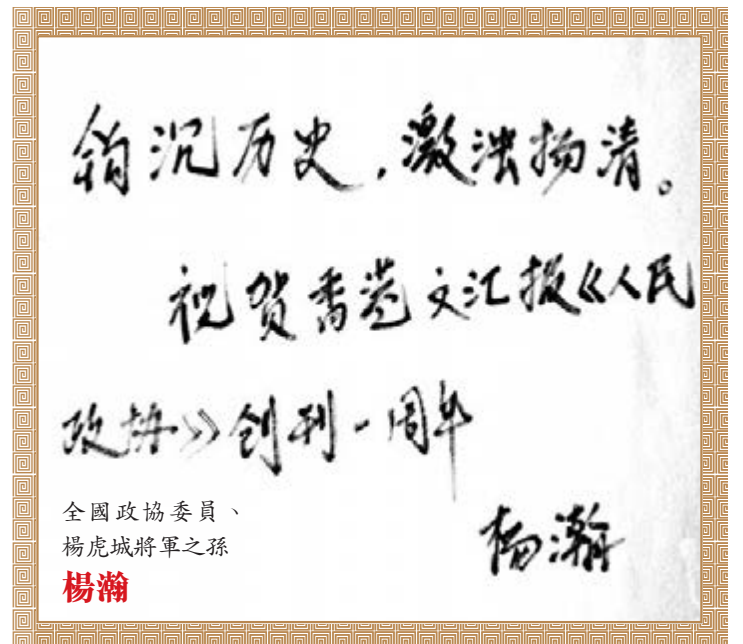 钩沉历史，激浊扬清。
祝贺香港文汇报《人民
政协》创刊一周年
杨瀚
全國政協委員、
楊虎城將軍之孫
楊瀚